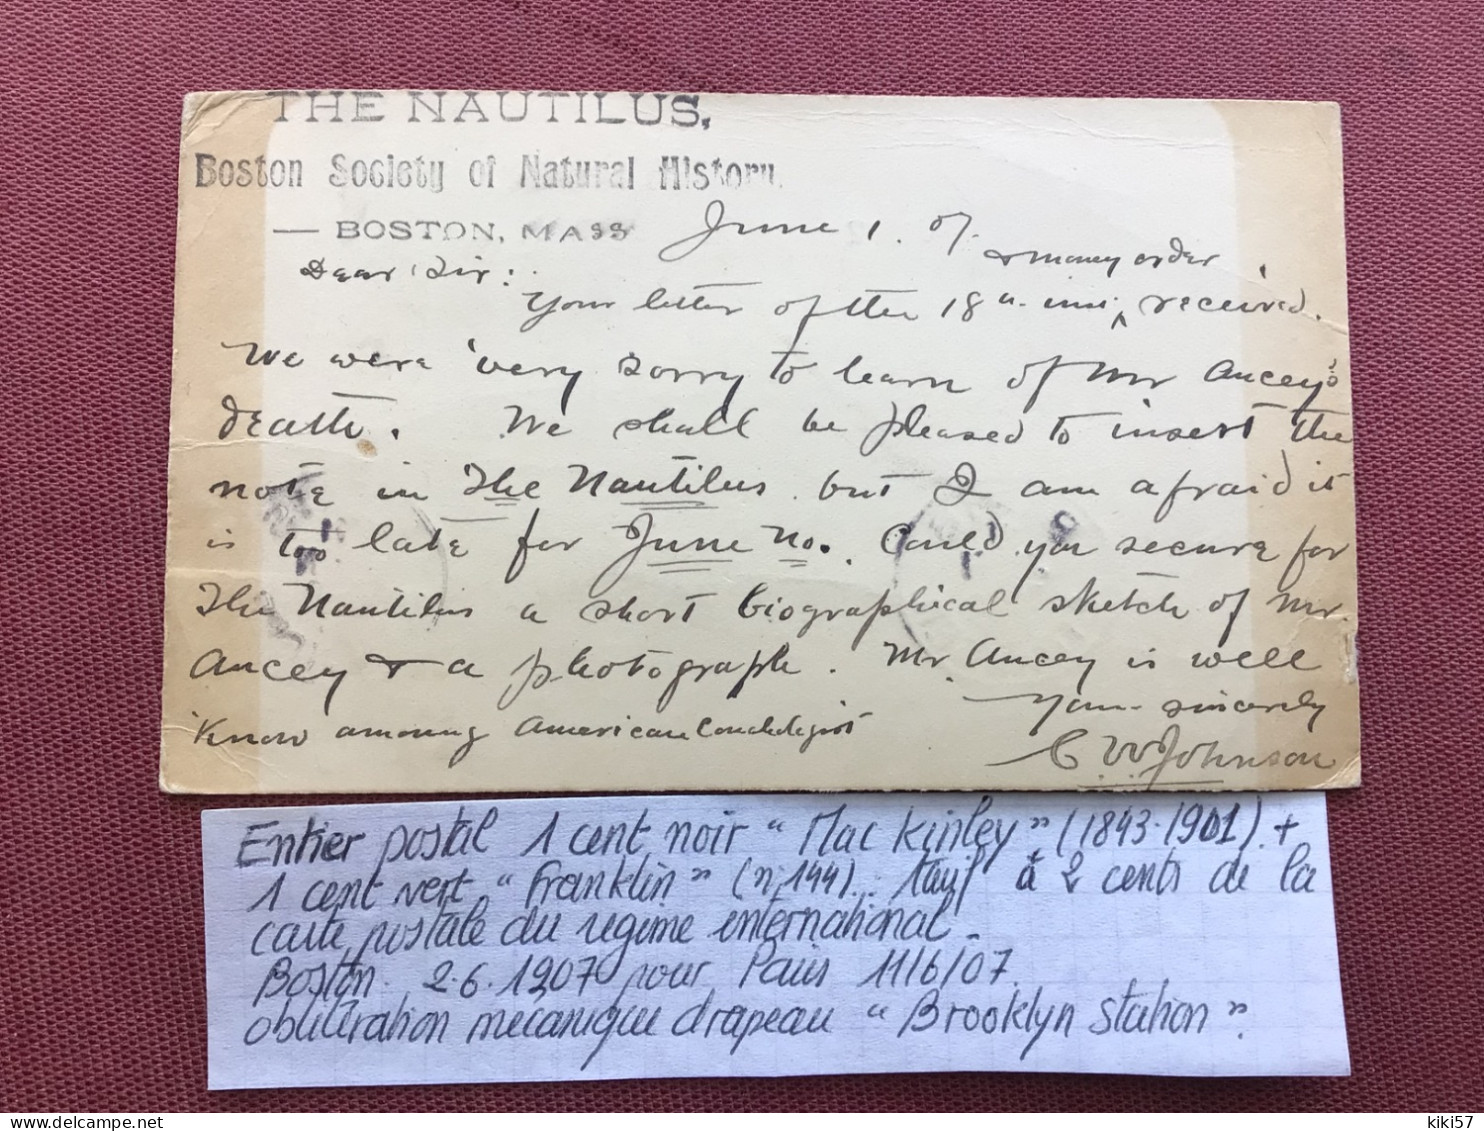 THE NAUTILUS,
Boston Society of Natural History.
— BOSTON, MASS
June 1. 07.
& money order
Dear Sir:
Your letter of the 18th inst ^ received.
We were very sorry to learn of Mr Ancey's
death. We shall be pleased to insert the
note in The Nautilus but I am afraid it
is too late for June No. Could you secure for
The Nautilus a short biographical sketch of Mr
Ancey & a photograph. Mr Ancey is well
know among American Conchologist
Yours sincerely
C W Johnson
Entier postal 1 cent noir "Mac Kinley" (1843-1901) +
1 cent vert "Franklin" (n°144). Tarif à 2 cents de la
carte postale du régime international.
Boston 2.6.1907 pour Paris 11/6/07.
oblitération mécanique drapeau "Brooklyn station".
kiki57